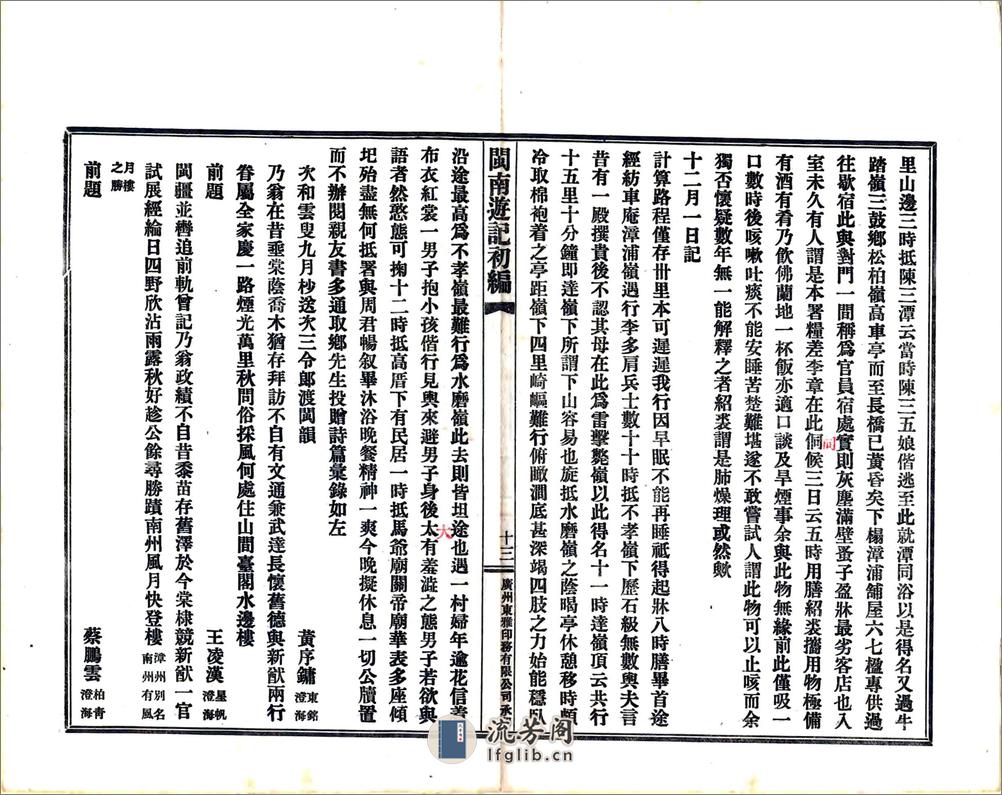 里山邊三時抵陳三潭云當時陳三五娘偕逃至此就潭同浴以是得名又過牛
踏嶺三鼓鄉松柏嶺高車亭而至長橋已黃昏矣下榻漳浦舖屋六七楹專供過
往歇宿此與對門一間稱爲官員宿處實則灰塵滿壁蚤子盈牀最劣客店也入
室未久有人謂是本署糧差李章在此伺候三日云五時用膳紹裘攜用物極備
有酒有肴乃飲佛蘭地一杯飯亦適口談及旱煙事余與此物無緣前此僅吸一
口數時後咳嗽吐痰不能安睡苦楚難堪遂不敢嘗試人謂此物可以止咳而余
獨否懷疑數年無一能解釋之者紹裘謂是肺燥理或然歟
十二月一日記
計算路程僅存卅里本可遲遲我行因早眠不能再睡祗得起牀八時膳畢首途
經紡車庵漳浦嶺遇行李多肩兵士數十十時抵不孝嶺下歷石級無數輿夫言
昔有一殿撰貴後不認其母在此爲雷擊斃嶺以此得名十一時達嶺頂云共行
十五里十分鐘即達嶺下所謂下山容易也旋抵水磨嶺之蔭暍亭休憩移時頗
冷取棉袍着之亭距嶺下四里崎嶇難行俯瞰澗底甚深竭四肢之力始能穩臥
閩南遊記初編
十三
廣州東雅印務有限公司承
沿途最高爲不孝嶺最難行爲水磨嶺此去則皆坦途也遇一村婦年逾花信着
布衣紅裳一男子抱小孩偕行見輿來避男子身後太有羞澁之態男子若欲與
語者然憨態可掬十二時抵高厝下有民居一時抵馬爺廟關帝廟華表多座傾
圮殆盡無何抵署與周君暢叙畢沐浴晚餐精神一爽今晚擬休息一切公牘置
而不辦閱親友書多通取鄉先生投贈詩篇彙錄如左
次和雲叟九月杪送次三令郎渡閩韻
黃序鏞 東銘澄海
乃翁在昔垂棠蔭喬木猶存拜訪不自有文通兼武達長懷舊德與新猷兩行
眷屬全家慶一路煙光萬里秋問俗採風何處住山間臺閣水邊樓
前題
王凌漢 星帆澄海
閩疆並轡追前軌曾記乃翁政績不自昔黍苗存舊澤於今棠棣競新猷一官
試展經綸日四野欣沾雨露秋好趁公餘尋勝蹟南州風月快登樓 漳州別名南州有風
月樓之勝
前題
蔡鵬雲 柏青澄海
伺
大
流芳閣
lfglib.cn